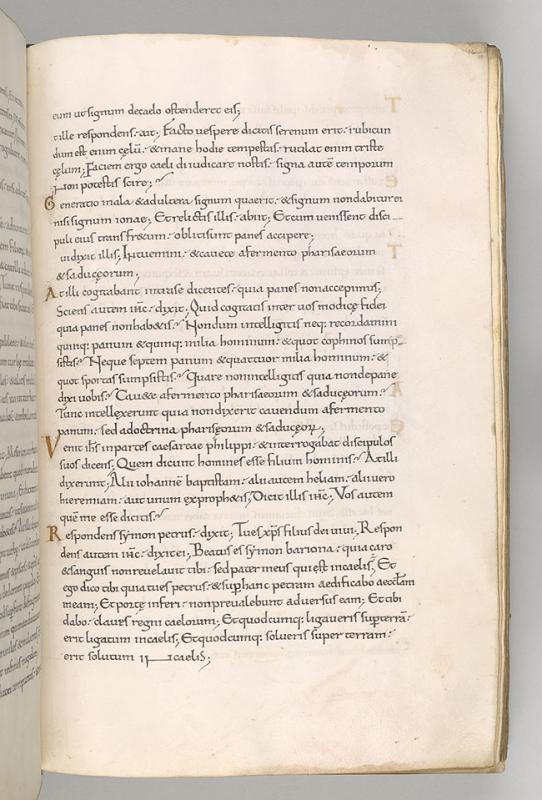 eum ut signum decaelo ostenderet eis;
atille respondens · ait; Facto vespere dicitis serenum erit · rubicun
dum est enim cęlū · & mane hodie tempestas · rutilat enim triste
cęlum; Faciem ergo caeli diiudicare nostis · signa autē temporum
Non potestis scire;
Generatio mala & adultera signum quaerit · & signum non dabitur ei
nisi signum ionae; Et relictis illis · abiit; Et cum venissent disci
puli eius trans fr&um · obliti sunt panes accipere;
ui dixit illis; Intuemini · & cavete afermento pharisaeorum
& saduceorum;
At illi cogitabant intra se dicentes · quia panes non accepimus;
Sciens autem iħc · dixit; Quid cogitatis inter vos modicę fidei
quia panes non hab&is; Nondum intelligitis neq; recordamini
quinq; panum & quinq; milia hominum · & quot cophinos sump
sistis; Neque septem panum & quattuor milia hominum · &
quot sportas sumpsistis; Quare non intelligitis quia non depane
dixi vobis; Cau&e afermento pharisaeorum & saduceorum;
Tunc intellexerunt quia non dixerit cavendum afermento
panum · sed adoctrina pharisęorum & saducęoꝝ;
Venit iħs in partes caesareae philippi · & interrogabat discipulos
suos dicens; Quem dicunt homines esse filium hominis; At illi
dixerunt; Alii iohannē baptistam · alii autem heliam · alii vero
hieremiam · aut unum exproph&is; Dicit illis iħc; Vos autem
quē me esse dicitis;
Respondens symon petrus · dixit; Tu es xp̄s filius dei vivi; Respon
dens autem iħc · dixit ei; Beatus es symon bariona · quia caro
& sanguis non revelavit tibi · sed pater meus qui est incaelis; Et
ego dico tibi quia tu es petrus · & sup hanc petram aedificabo aecclam
meam; Et portę inferi · non prevalebunt adversus eam; Et tibi
dabo · claves regni caelorum; Et quodcumq; ligaveris sup terrā ·
erit ligatum incaelis; Et quodcumq; solveris super terram ·
erit solutum in caelis;